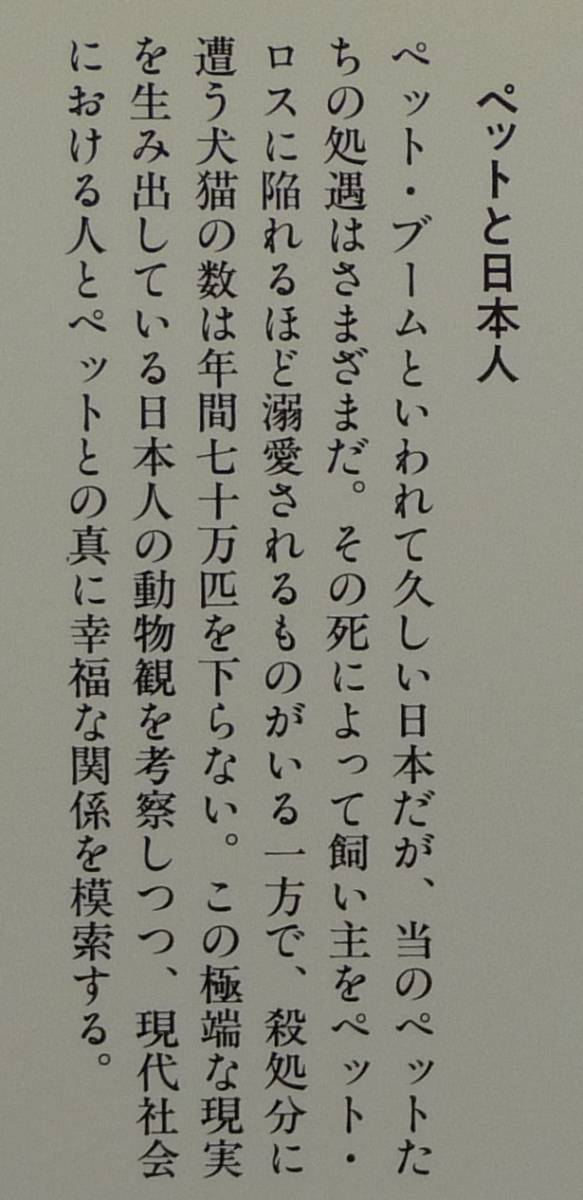 ペットと日本人
ペット・ブームといわれて久しい日本だが、当のペットた
ちの処遇はさまざまだ。その死によって飼い主をペット・
ロスに陥れるほど溺愛されるものがいる一方で、殺処分に
遭う犬猫の数は年間七十万匹を下らない。この極端な現実
を生み出している日本人の動物観を考察しつつ、現代社会
における人とペットとの真に幸福な関係を模索する。